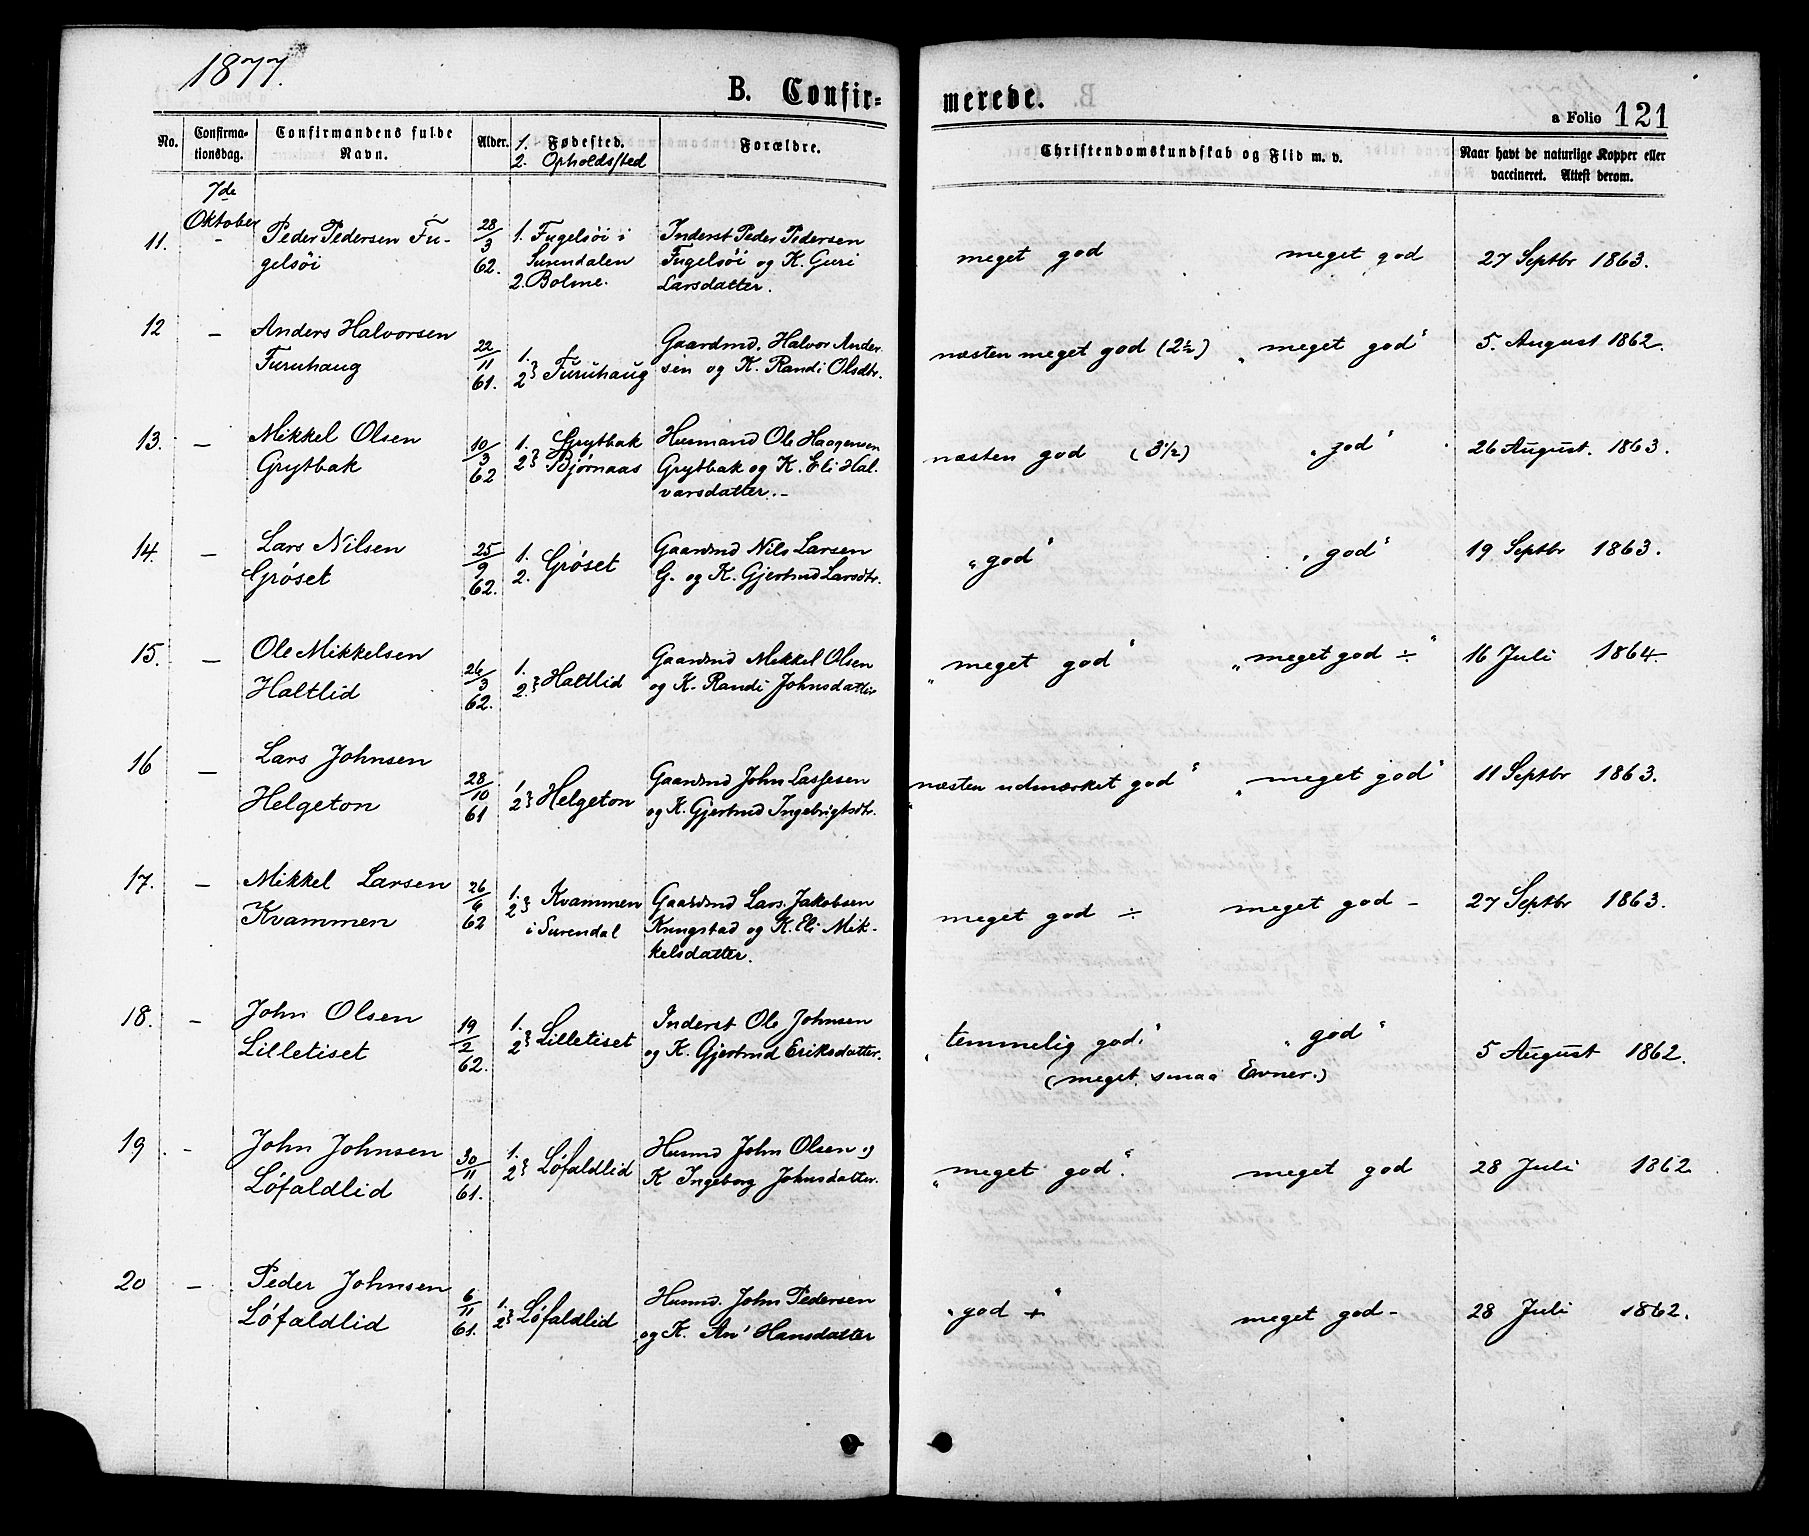 1877.
B. Confir=
merede.
a Folio 121
No.
Confirma-
tionsdag.
Confirmandens fulde
Navn.
Alder.
1. Fødested.
2. Opholdssted
Forældre.
Christendomskundskab og Flid m. v.
Naar havt de naturlige Kopper eller
vaccineret. Attest derom.
7de
Oktober
11. - Peder Pedersen Fu-
gelsöi
28/3 62.
1. Fugelsöi i
Surendalen
2. Bolme.
Inderst Peder Pedersen
Fugelsöi og K. Guri
Larsdatter.
meget god
meget god
27 Septbr 1863.
12 - Anders Halvorsen
Furuhaug
22/11 61.
1.
2 } Furuhaug
Gaardmd. Halvor Ander
sen og K. Randi Olsdtr.
næsten meget god (2½)
„ meget god“
5. August 1862.
13. - Mikkel Olsen
Grytbak
10/3 62
1. Grytbak
2 } Bjørnaas
Husmand Ole Haagensen
Grytbak og K. Eli Hal.
varsdatter.-
næsten god (3½)
„god“
26 August. 1863.
14. - Lars Nilsen
Gröset
25/9 62.
1.
2. Gröset
Gaardmd Nils Larsen
G. og K. Gjertrud Larsdtr.
„god“
„god“
19 Septbr 1863.
15. - Ole Mikkelsen
Haltlid
26/3 62.
1.
2. } Haltlid
Gaardmd Mikkel Olsen
og K. Randi Johnsdatter
„meget god“
„meget god ÷“
16 Juli 1864.
16 - Lars Johnsen
Helgeton
28/10 61
1.
2 } Helgeton
Gaardmd John Lassesen
og K. Gjertrud Ingebrigtsdtr.
„næsten udmærket god“
„meget god“
11 Septbr 1863.
17. - Mikkel Larsen
Kvammen
26/6 62
1.
2 } Kvammen
i Surendal
Gaardmd Lars Jakobsen
Krungstad og K. Eli Mik-
kelsdatter.
meget god ÷
meget god -
27 Septbr 1863.
18. - John Olsen
Lilletiset
19/2 62.
1.
2 } Lilletiset
Inderst Ole Johnsen
og K. Gjertrud Eriksdatter.
„temmelig god.“
(meget smaa Evner.)
„god“
5 August 1862.
19. - John Johnsen
Löfaldlid
30/11 61.
1.
2 } Löfaldlid
Husmd John Olsen og
K Ingeborg Johnsdatter.
„meget god“.
meget god
28 Juli 1862
20 - Peder Johnsen
Löfaldlid
6/11 61.
1.
2 } Löfaldlid
Husmd. John Pedersen
og K. An' Hansdatter
„god ÷“
meget god -
28 Juli 1862.